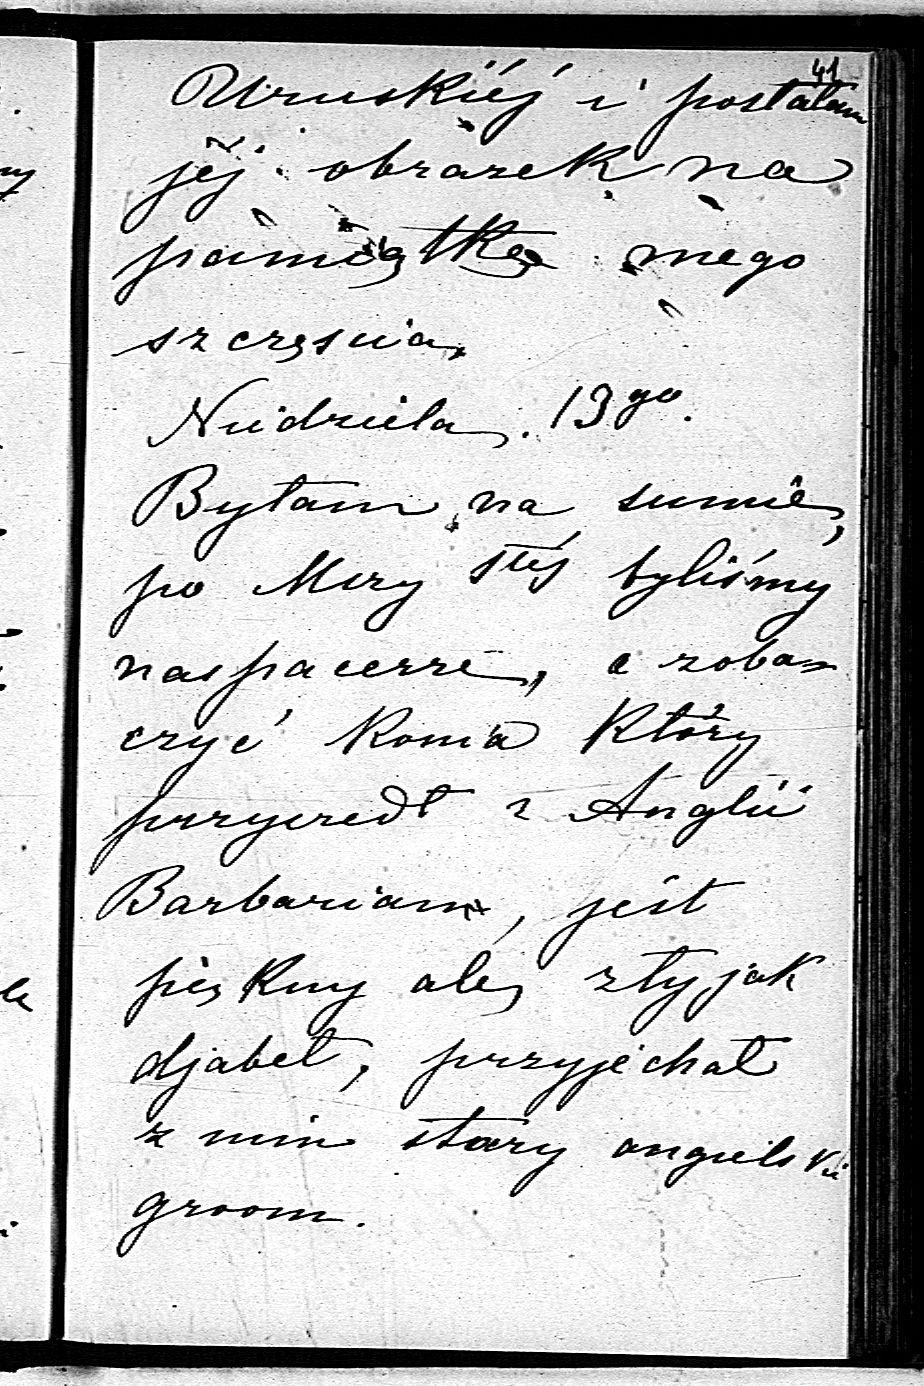 41
Uruskiéj i posłałam
jéj obrazek na
pamiątkę mego
szczęścia,
Niedziela. 13go.
Byłam na sumie,
po Mszy Stéj byliśmy
naspacerze, a zoba=
czyć konia Który
przyszedł z Anglii
Barbarian, jest
piękny ale zły jak
djabeł, przyjechał
z nim stary angielski
groom.